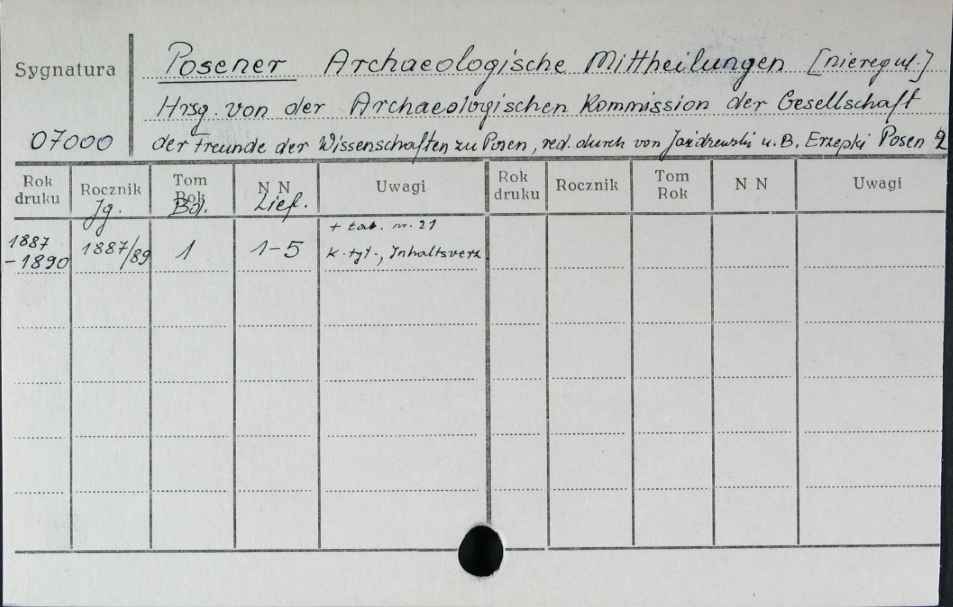 Sygnatura
Posener Archaeologische Mittheilungen [nieregul.]
Hrsg. von der Archaeologischen Kommission der Gesellschaft
07000
der Freunde der Wissenschaften zu Posen, red. durch von Jażdzewski u. B. Erzepki Posen
Rok druku Rocznik Tom Rok N N Uwagi Rok druku Rocznik Tom Rok N N Uwagi
Jg. Bd. Lief.
+ tab. nr. 21
1887 -1890 1887/89 1 1-5 k. tyt., Inhaltsverz.